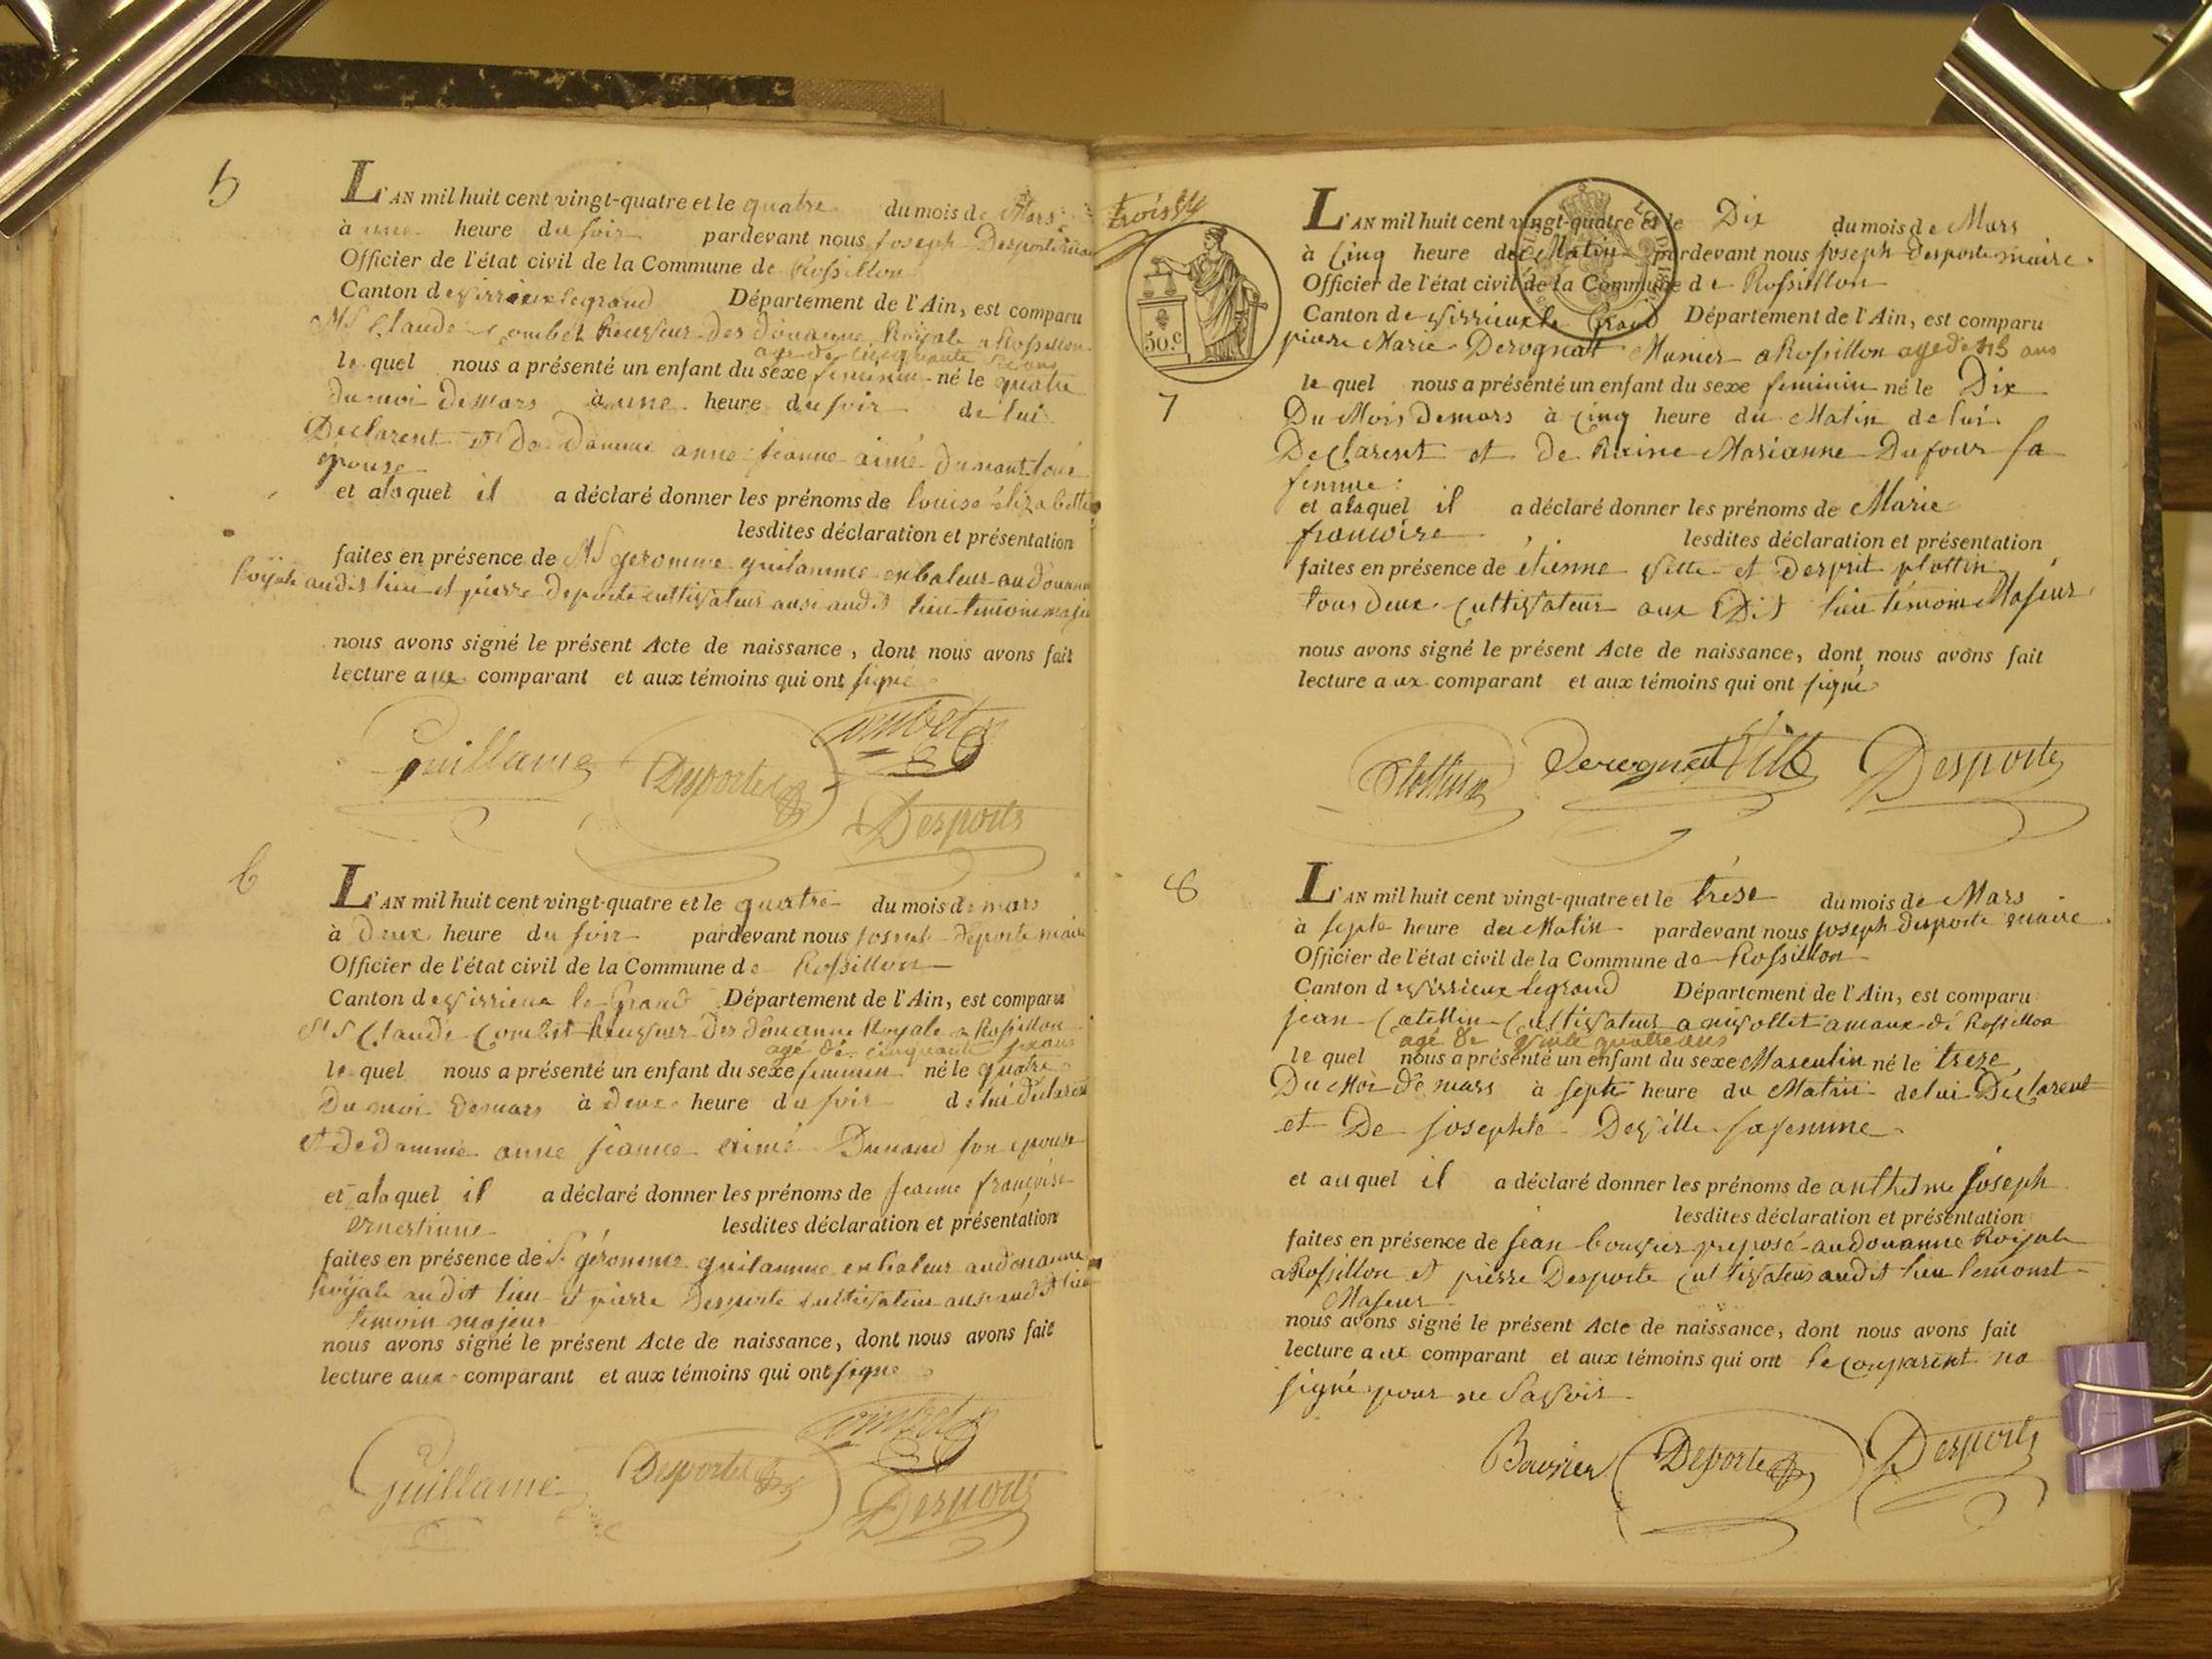 5
L'AN mil huit cent vingt-quatre et le quatre du mois de Mars
à une heure du soir pardevant nous joseph Desporte maire
Officier de l'état civil de la Commune de Rossillon
Canton de virrieux le grand Département de l'Ain, est comparu
Claude Combet Receveur des douanne Royale a Rossillon
age de cinquante
le quel nous a présenté un enfant du sexe feminin né le quatre
du moi de mars à une heure du soir de lui
Declarent et de Damme anne jeanne aimé
épouse
et alaquel il a déclaré donner les prénoms de louise élizabette
lesdites déclaration et présentation
faites en présence de geromme guilamme enbaleur au douanne
Royale au dit lieu et pierre Deporte cultivateur ausi audit lieu temoin majeur
nous avons signé le présent Acte de naissance, dont nous avons fait
lecture aux comparant et aux témoins qui ont signé
Guillame Desporte Combet
Desporte
6
L'AN mil huit cent vingt-quatre et le quatre du mois de mars
à deux heure du soir pardevant nous joseph deporte maire
Officier de l'état civil de la Commune de Rossillon
Canton de virrieux le Grand Département de l'Ain, est comparu
Claude Combet Receveur des douanne Royale a Rossillon
agé de cinquante
le quel nous a présenté un enfant du sexe feminin né le quatre
Du moi de mars à deux heure du soir de lui declarent
et de damme anne jeanne aimé Dunand son epouse
et alaquel il a déclaré donner les prénoms de jeanne françoise
ernestinne lesdites déclaration et présentation
faites en présence de S. géromme guilamme enbaleur au douanne
Royale au dit lieu et pierre Desporte cultivateur ausi audit lieu
temoin majeur
nous avons signé le présent Acte de naissance, dont nous avons fait
lecture aux comparant et aux témoins qui ont signé
Guillame Deporte Combet
Desporte
trois
50 c.
7
L'AN mil huit cent vingt-quatre et le Dix du mois de Mars
à Cinq heure du Matin pardevant nous joseph desporte maire
Officier de l'état civil de la Commune de Rossillon
Canton de virrieux le Grand Département de l'Ain, est comparu
pierre Marie Derognat Munier a Rossillon agé de ans
le quel nous a présenté un enfant du sexe feminin né le Dix
Du Mois de mars à Cinq heure du Matin de lui
Declarent et de Reine Marianne Dufour sa
femme
et alaquel il a déclaré donner les prénoms de Marie
francoise lesdites déclaration et présentation
faites en présence de étienne vitte et Desprit plottin
tous deux cultivateur aux Dit lieu témoin Majeur
nous avons signé le présent Acte de naissance, dont nous avons fait
lecture aux comparant et aux témoins qui ont signé
Plottin Derognat Vitte Desporte
8
L'AN mil huit cent vingt-quatre et le trese du mois de Mars
à septe heure du Matin pardevant nous joseph desporte maire
Officier de l'état civil de la Commune de Rossillon
Canton de virrieux le grand Département de l'Ain, est comparu
jean Catellin Cultivateur a de Rossillon
agé de vinte quatre ans
le quel nous a présenté un enfant du sexe Masculin né le treze
Du Moi de mars à septe heure du Matin de lui Déclarent
et De josephte Deville sa femme
et auquel il a déclaré donner les prénoms de anthelme joseph
lesdites déclaration et présentation
faites en présence de jean bouvier preposé au douanne Roiyale
a Rossillon et pierre Desporte cultivateur audit lieu temoint
Majeur
nous avons signé le présent Acte de naissance, dont nous avons fait
lecture aux comparant et aux témoins qui ont le comparent na
signé pour ne savoir
Bouvier Deporte Desporte